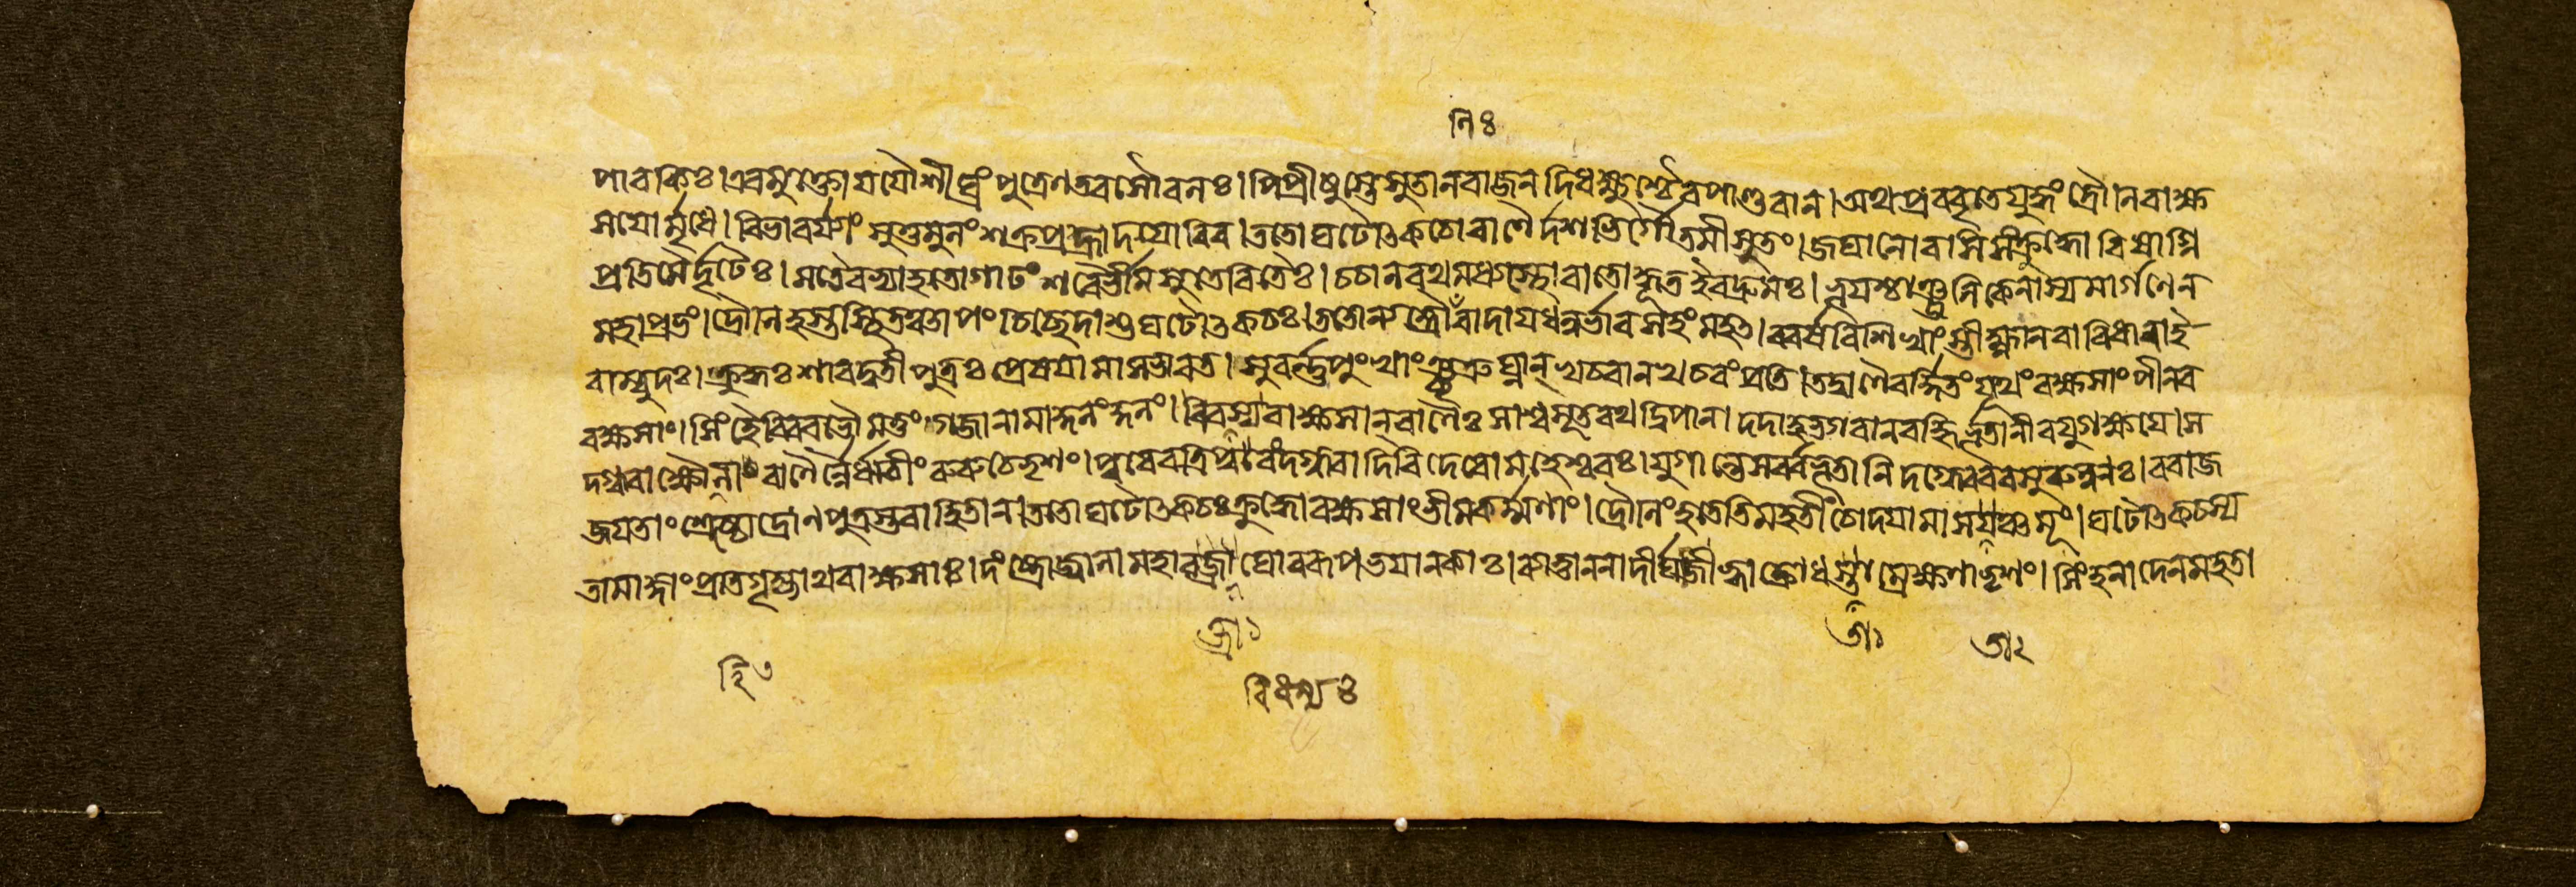 নিঃ
পাবকিঃ। এবমুক্তো যযৌ শীঘ্রং পুত্রেণ তব সৌবলঃ। পিপ্রীষুস্তে সুতান রাজন দিধক্ষুশ্চৈব পাণ্ডবান। অথ প্রববৃতে যুদ্ধং দ্রৌনিরাক্ষ
সয়োর্মৃধে। বিভাবর্যাং সুতুমুলং শক্রপ্রহ্লাদয়োরিব। ততো ঘটোৎকচো বাণৈর্দশভির্গৌতমীসুতং। জঘানোরসি সংক্রুদ্ধো বিষাগ্নি
প্রতিমৈর্দৃঢৈঃ। স তৈরভ্যাহতো গাঢং শরৈর্ভীমসুতেরিতৈঃ। চচাল রথমধ্যস্থো বাতোদ্ধূত ইব দ্রুমঃ। ভূয়শ্চাঞ্জলিকেনাস্য মার্গণেন
মহাপ্রভং। দ্রৌনিহস্তস্থিতঞ্চাপং চিচ্ছেদাশু ঘটোৎকচঃ। ততোন্যদ্দ্রৌণিরাদায় ধনুর্ভারসহং মহৎ। ববর্ষ বিশিখাংস্তীক্ষ্ণান বারিধারা ই
বাম্বুদঃ। ক্রুদ্ধঃ শারদ্বতীপুত্রঃ প্রেষয়ামাস ভারত। সুবর্ণপুংখাংশ্চত্রুঘ্নান্ খচরান খচরং প্রতি। তদ্বাণৈরর্দ্দিতং যূথং রক্ষসাং পীনব
রক্ষসাং। সিংহৈরিব বভৌ মত্তং গজানামাকুলং কুলং। বিধম্য রাক্ষসান্ বাণৈঃ সাশ্বসূতরথদ্বিপান। দদাহ ভগবান বহ্নির্ভূতানীব যুগক্ষয়ে। স
দগ্ধ্বাক্ষৌহিণীং বাণৈর্নৈর্ঋতীং রুরুচে ভৃশং। পুরেব ত্রিপুরং দগ্ধ্বা দিবি দেবো মহেশ্বরঃ। যুগান্তে সর্ব্বভূতানি দগ্ধ্বেব বসুরুল্বনঃ। ররাজ
জয়তাং শ্রেষ্ঠো দ্রোণপুত্রস্তবাহিতান। ততো ঘটোৎকচঃ ক্রুদ্ধো রক্ষসাং ভীমকর্ম্মণাং। দ্রৌনিং হতেতি মহতীং চোদয়ামাস তাং চমূং। ঘটোৎকচস্য
তামাজ্ঞাং প্রতিগৃহ্যাথ রাক্ষসাঃ। দংষ্ট্রোজ্জ্বলা মহাবক্ত্রা ঘোররূপ ভয়ানকাঃ। ব্যাত্তাননা দীর্ঘজীহ্বা ক্রোধতাম্রেক্ষণা ভৃশং। সিংহনাদেন মহতা
ত্রা১
তা১
তা২
হি৩
বিধম্যঃ